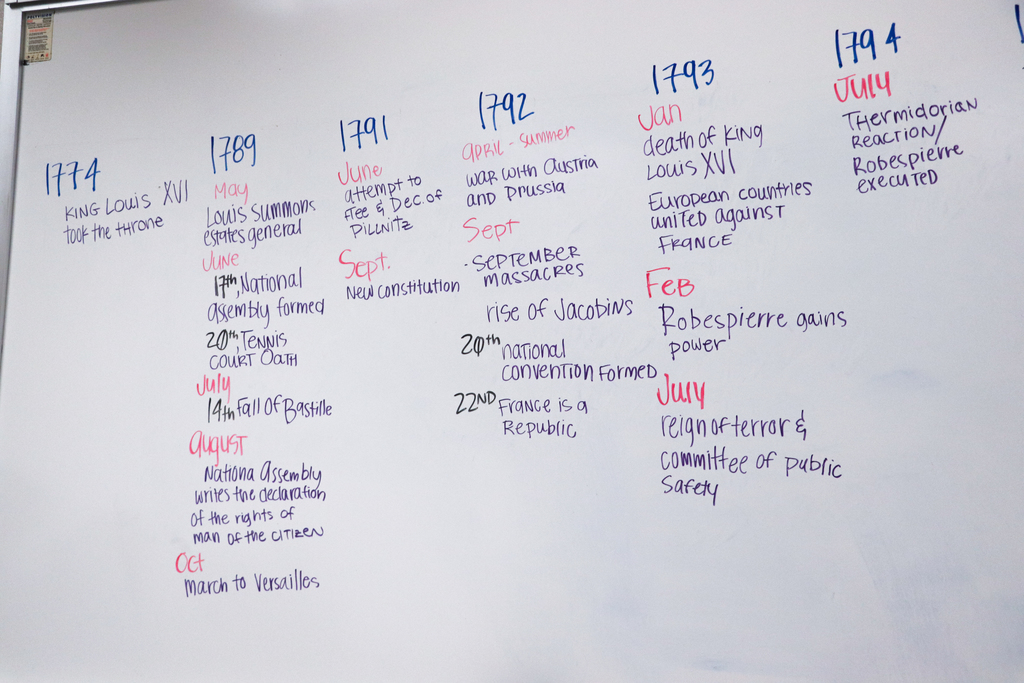 1774
KING LOUIS XVI
took the THRONE
1789
May
Louis summons
estates general
JUNE
17th, National
assembly formed
20th, TENNIS
COURT OATH
July
14th Fall of Bastille
august
Nationa Assembly
writes the declaration
of the rights of
man of the CITIZEN
Oct
march to Versailles
1791
June
attempt to
flee & Dec. of
PILLNITZ
Sept.
New constitution
1792
april - summer
war with Austria
and Prussia
Sept
· SEPTEMBER
MASSACRES
rise of Jacobins
20th national
convention FORMED
22ND France is a
Republic
1793
Jan
death of King
Louis XVI
European countries
united against
FRANCE
FEB
Robespierre gains
power
July
reign of terror &
committee of public
Safety
1794
JULY
THERMIDORIAN
REACTION/
Robespierre
executed